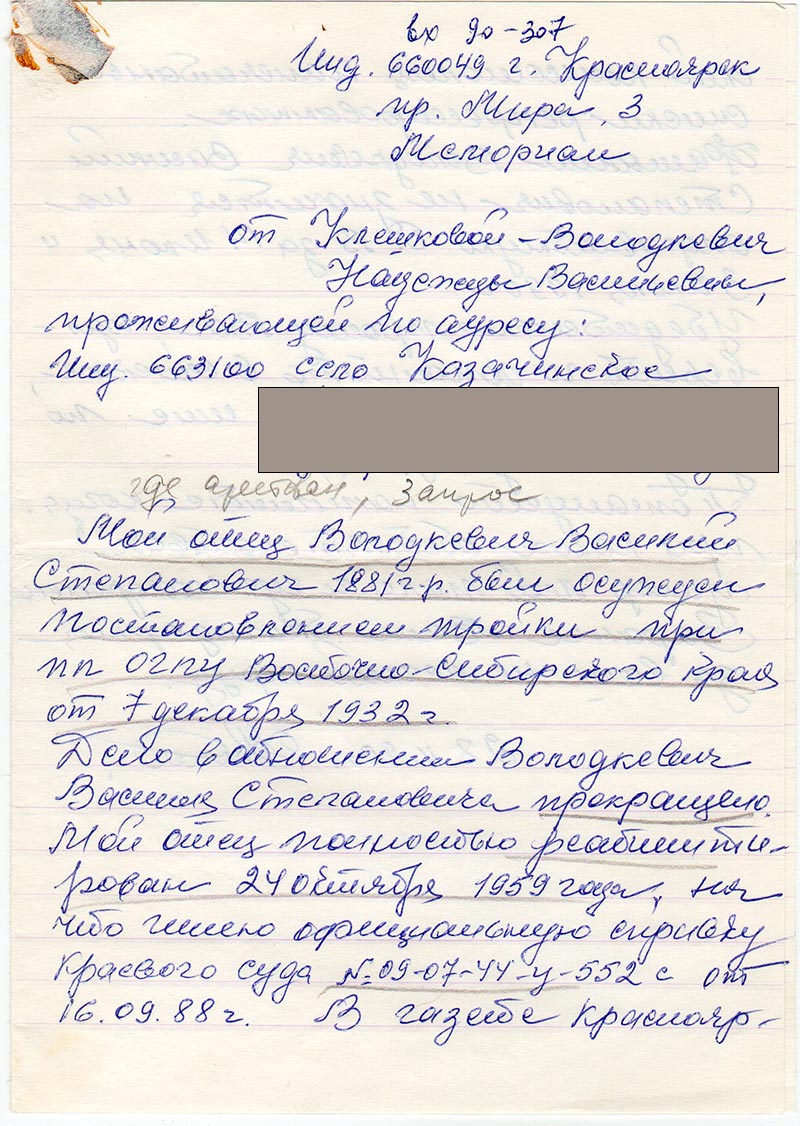 вх 90-307
Инд. 660049 г. Красноярск
пр. Мира, 3
Мемориал
от Клешковой-Володкевич
Надежды Васильевны,
проживающей по адресу:
Инд. 663100 село Казачинское
где арестован, запрос
Мой отец Володкевич Василий
Степанович 1881 г.р. был осужден
постановлением тройки при
пп ОГПУ Восточно-Сибирского края
от 7 декабря 1932 г.
Дело в отношении Володкевич
Василия Степановича прекращено.
Мой отец полностью реабилити-
рован 24 октября 1959 года, на
что имею официальную справку
Краевого суда № 09-07-44-у-552 с от
16.09.88 г. В газете Краснояр-